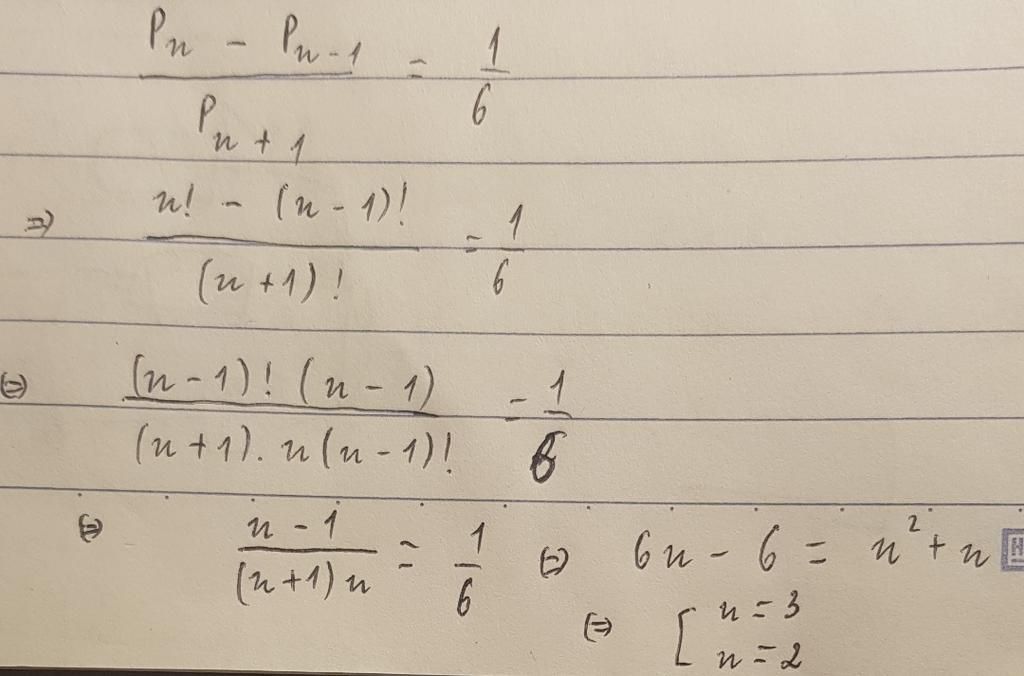 (P_n - P_{n-1}) / P_{n+1} = 1/6
=> (n! - (n-1)!) / (n+1)! = 1/6
(=) ((n-1)! (n-1)) / ((n+1). n(n-1)!) = 1/6
(=) (n-1) / ((n+1)n) = 1/6 (=) 6n - 6 = n² + n
(=) [ n = 3
n = 2